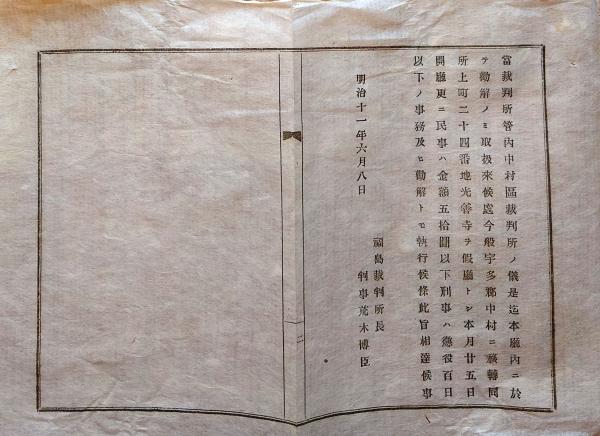 當裁判所管內中村區裁判所ノ儀是迄本廳內ニ於
テ勸解ノミ取扱來候處今般宇多郡中村ニ移轉同
所上町二十四番地光善寺ヲ假廳トシ本月廿五日
開廳更ニ民事ハ金額五拾圓以下刑事ハ懲役百日
以下ノ事務及ヒ勸解トモ執行候條此旨相達候事
明治十一年六月八日
福島裁判所長
判事荒木博臣